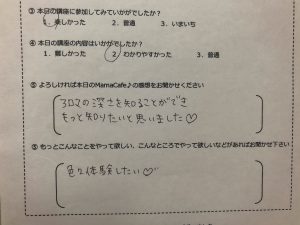 ③ 本日の講座に参加してみていかがでしたか?
1. 楽しかった 2. 普通 3. いまいち
④ 本日の講座の内容はいかがでしたか?
1. 難しかった 2. わかりやすかった 3. 普通
⑤ よろしければ本日のMamaCafe♪の感想をお聞かせください
アロマの深さを知ることができ
もっと知りたいと思いました♡
⑥ もっとこんなことをやって欲しい、こんなところでやって欲しいなどがあればお聞かせ下さい
色々体験したい♡